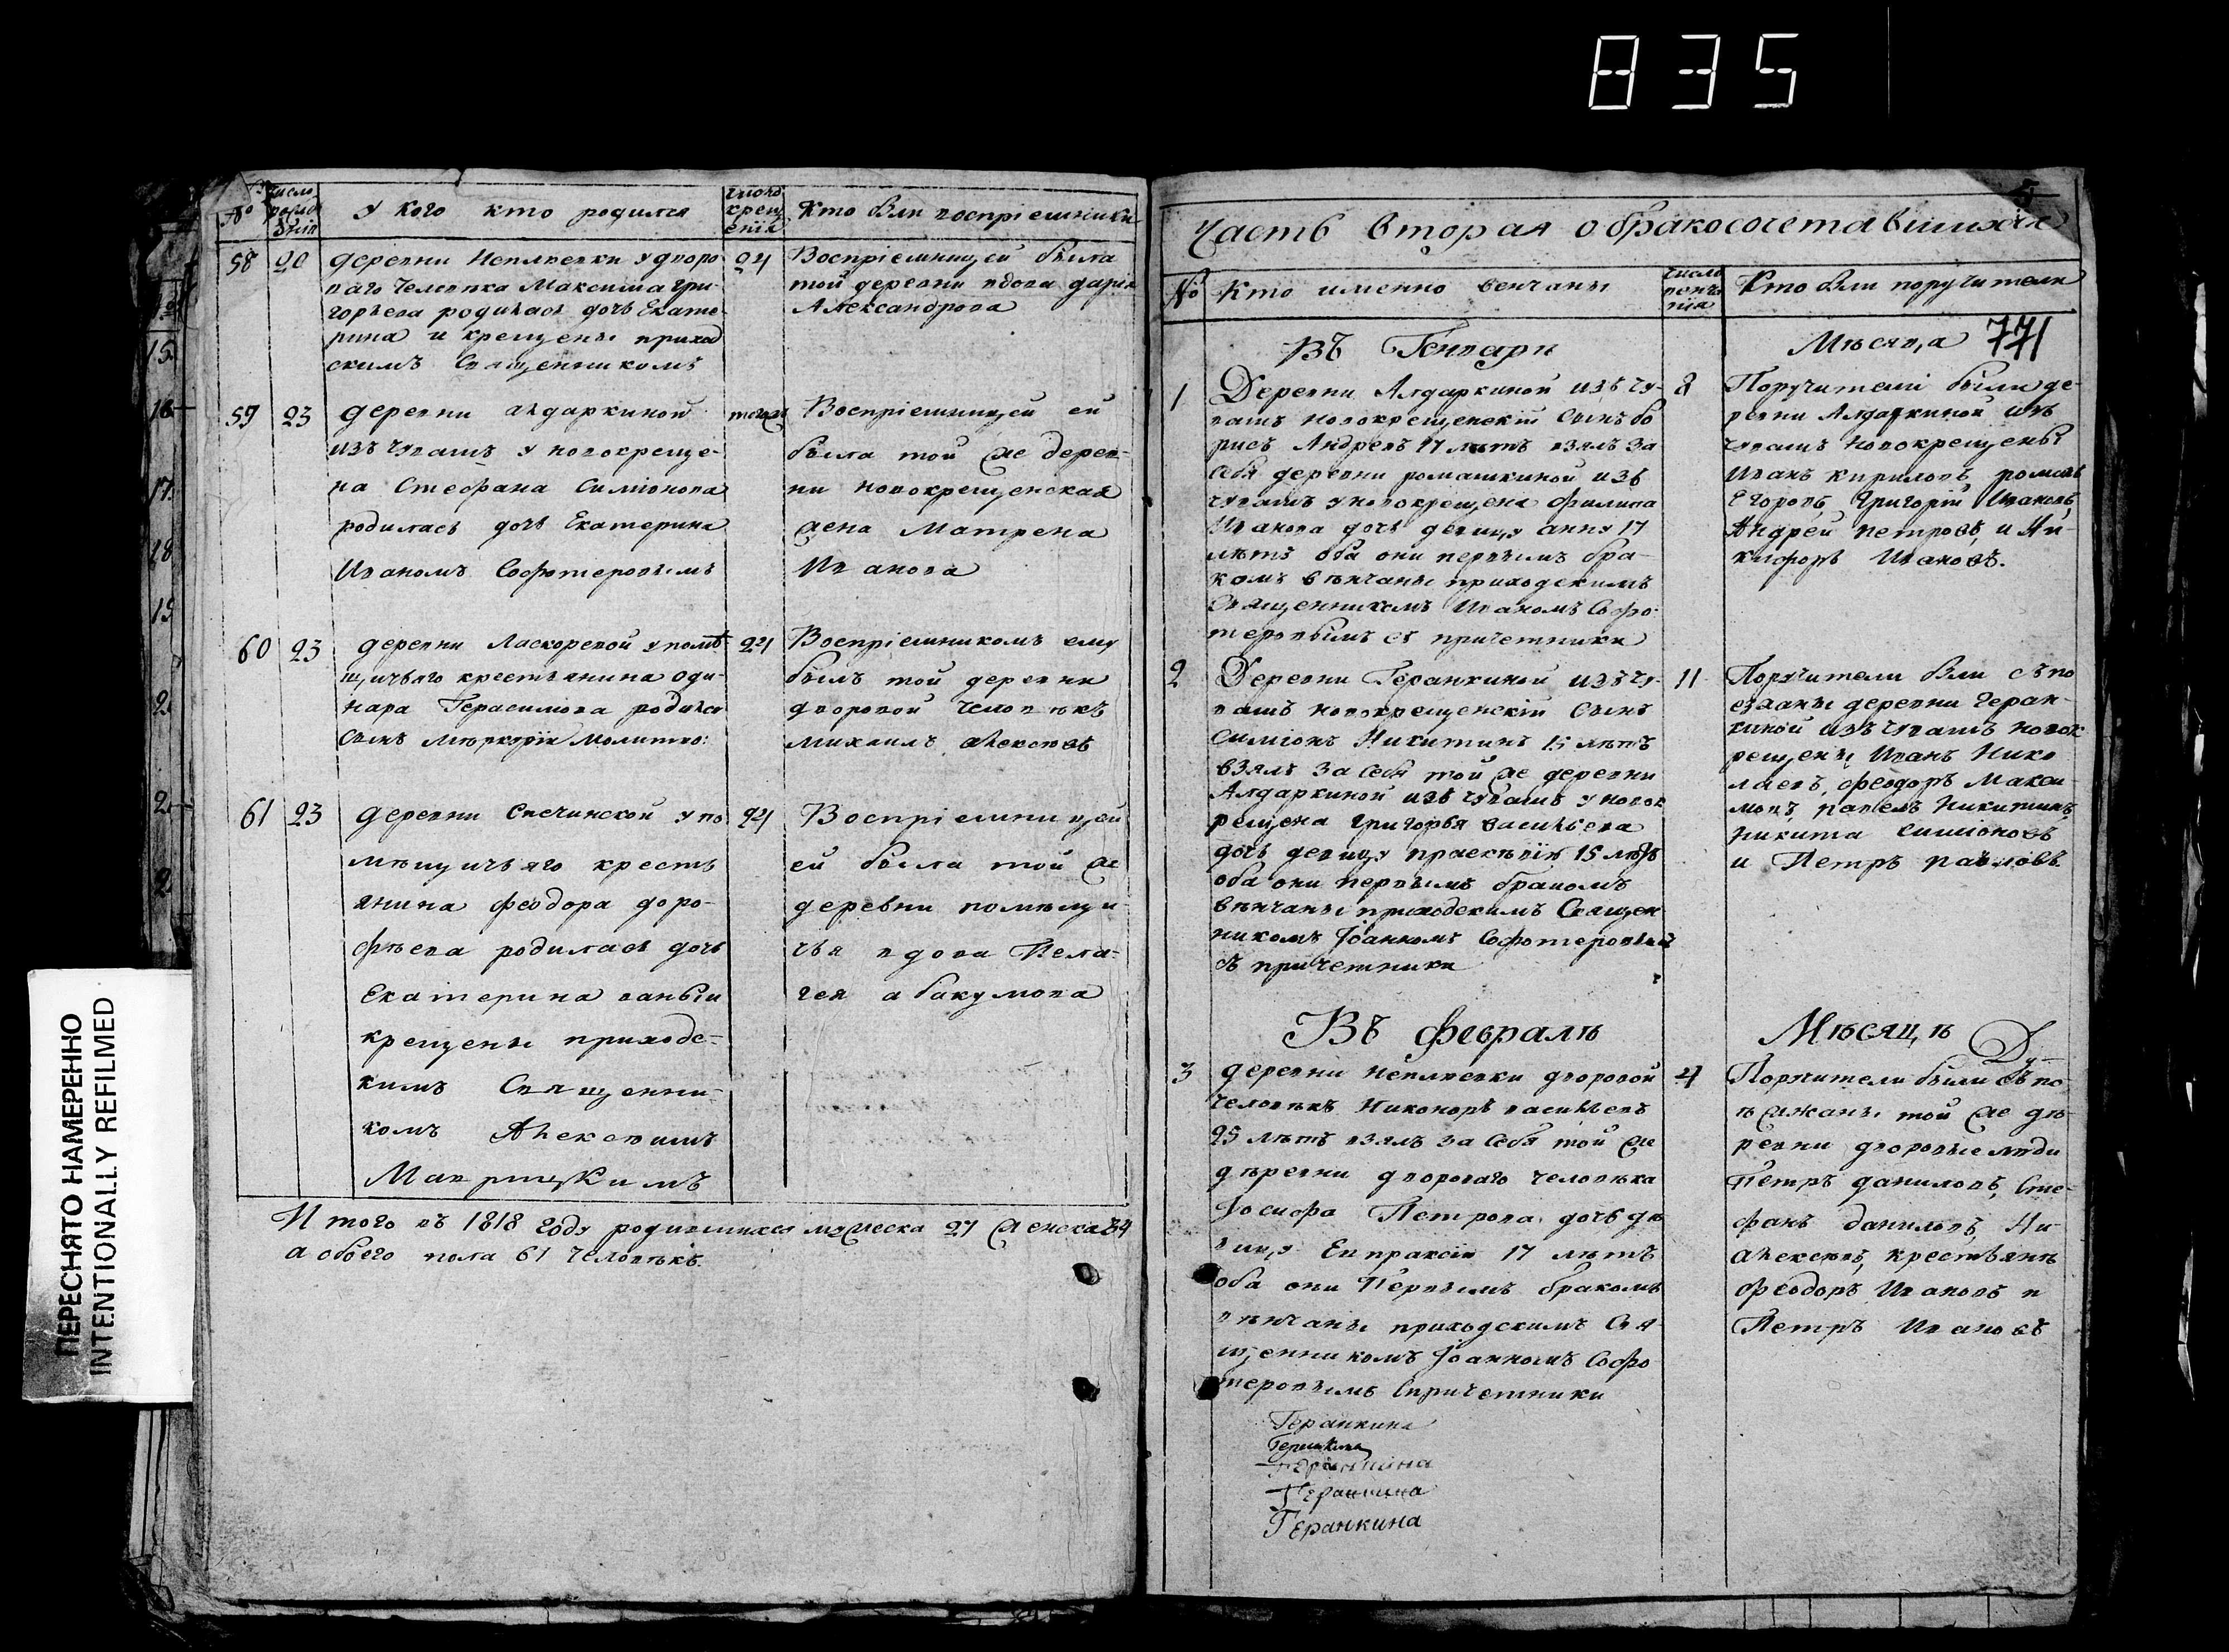 835
ПЕРЕСНЯТО НАМЕРЕННО
INTENTIONALLY REFILMED
№
число рожденія
У кого кто родился
число крещенія
Кто был воспріемники
58
20
деревни Неплюевки у дворо
ваго человѣка Максима Гри-
горьева родилась дочь Екате-
рина и крещены приход
скимъ Священникомъ
24
Воспріемницей была
той деревни вдова дарія
Александрова
59
23
деревни алдаркиной
изъ чувашъ у новокреще-
на Стефана Симіонова
родилась дочь Екатерина
Иваномъ Софотеровымъ
тогож
Воспріемницей ей
была той же дерев-
ни новокрещенская
жена Матрена
Иванова
60
23
деревни Ласкоревой у помѣ
щичьяго крестьянина
Герасимова родился
сынъ Молитво:
24
Воспріемникомъ ему
былъ той деревни
дворовой человѣкъ
михаилъ алексѣевъ
61
23
деревни Спечинской у по
мѣщичьяго кресть
янина феодора доро-
фѣева родилась дочь
Екатерина
крещены приходс-
кимъ Священни-
комъ Алексѣимъ
24
Воспріемницей
ей была той же
деревни помѣщи-
чья вдова Пела-
гея абакумова
Итого въ 1818 году родившихся мужеска 27 женска 34
а обоего пола 61 человѣкъ.
5
Часть вторая о бракосочетавшихся
№
Кто именно венчаны
число венчанія
Кто были поручители
771
Въ Генваре
Мѣсяца
1
Деревни Алдаркиной изъ чу-
вашъ новокрещенскій сынъ бо
рисъ Андреевъ 17 лѣтъ взялъ за
себя деревни ромашкиной изъ
чувашъ у новокрещена филипа
Иванова дочь девицу анну 17
лѣтъ оба они первымъ бра-
комъ вѣнчаны приходскимъ
Священникомъ Иваномъ Софо-
теровымъ съ причетники
8
Поручители были де-
ревни Алдаркиной изъ
чувашъ новокрещены
Иванъ кириловъ романъ
Егоровъ, Григорій Ивановъ,
Андрей петровъ, и Ни-
кифоръ Ивановъ.
2
Деревни Геранкиной изъ чу-
вашъ новокрещенскій сынъ
симіонъ Никитинъ 15 лѣтъ
взялъ за себя той же деревни
Алдаркиной изъ чувашъ у новок
рещена григорья васильева
дочь девицу праскѣвію 15 лѣтъ
оба они первымъ бракомъ
вѣнчаны приходскимъ Священ
никомъ Іоанномъ Софотеровымъ
съ причетники
11
Поручители были съ по
езжаны деревни Геран-
киной изъ чувашъ новок
рещены Иванъ Нико
лаевъ, феодоръ Макси
мовъ, павелъ Никитинъ,
Никита симіоновъ
и Петръ павловъ
Въ февралѣ
Мѣсяцѣ
3
деревни неплюевки дворовой
человѣкъ Никоноръ васильевъ
25 лѣтъ взялъ за себя той же
дѣревни двороваго человѣка
Іосифа Петрова дочь дѣ
вицу Евпраксію 17 лѣтъ
оба они Первымъ бракомъ
вѣнчаны приходскимъ Свя
щенникомъ Іоанномъ Софо
теровымъ спричетники
4
Поручители были съ по-
ѣзжаны той же де-
ревни дворовые люди
Петръ даниловъ, Сте-
фанъ даниловъ, Ни-
алексѣевъ, крестьянѣ
феодоръ Ивановъ и
Петръ Ивановъ
Геранкина
Геранкина
Геранкина
Геранкина
Геранкина